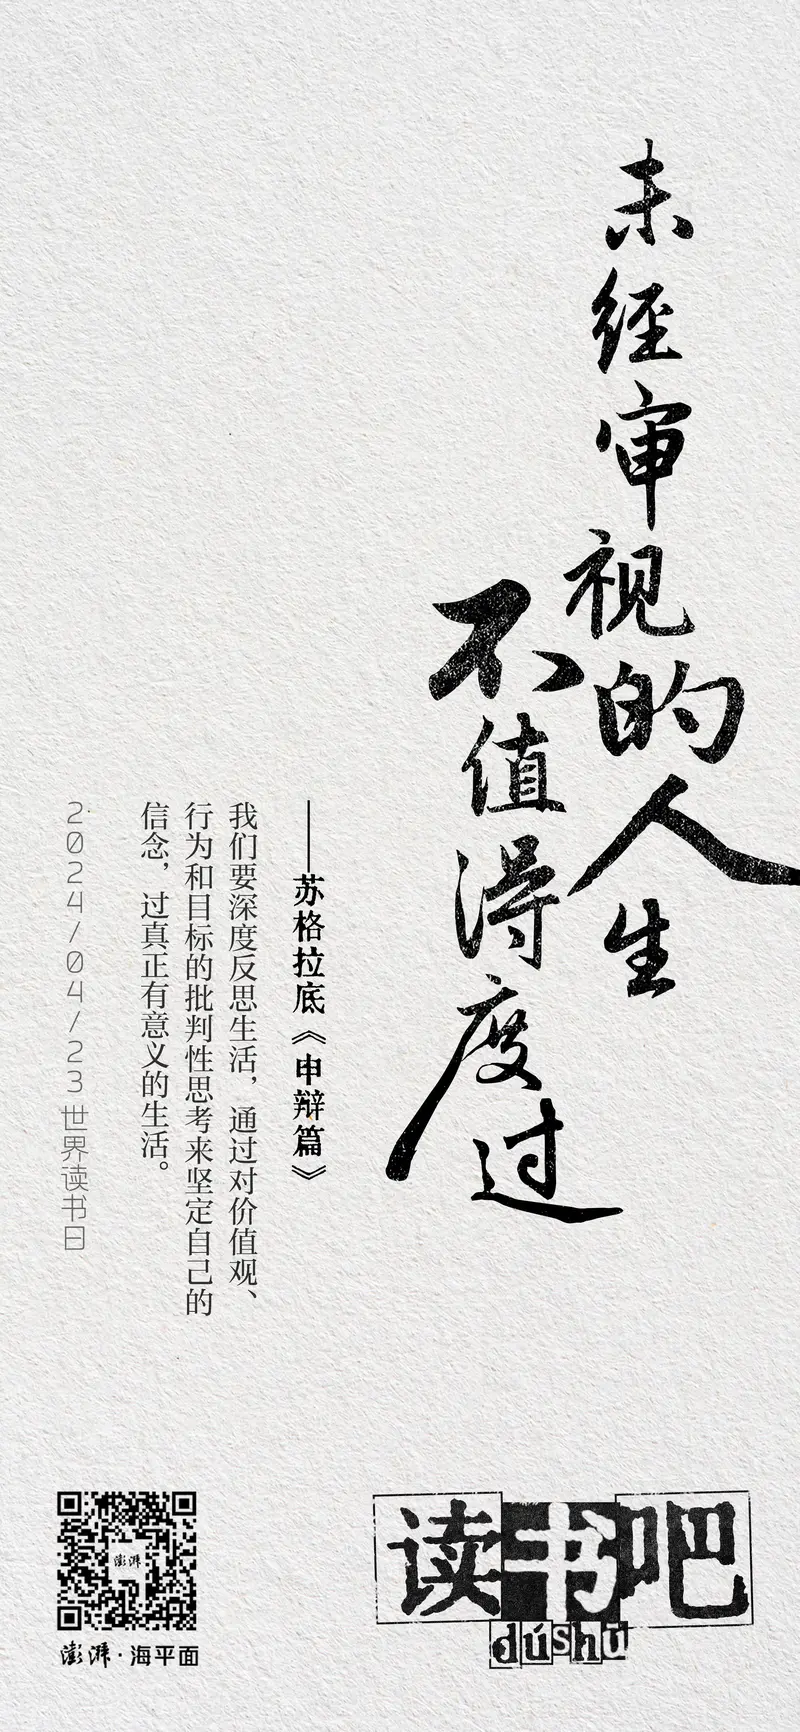 未经审视的人生
不值得度过
——苏格拉底《申辩篇》
我们要深度反思生活，通过对价值观、
行为和目标的批判性思考来坚定自己的
信念，过真正有意义的生活。
2024/04/23世界读书日
澎湃
澎湃·海平面
读书吧
dúshū